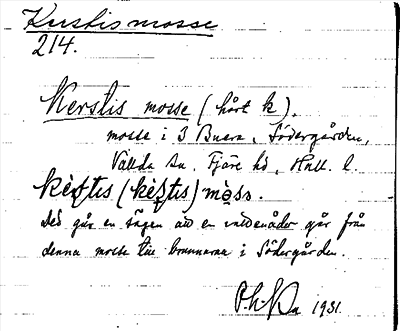 Kerstis mosse
214.
Kerstis mosse (hårt k).
mosse i 3 Buera, Södergården,
Vallda sn, Fjäre hd, Hall. l.
kèʂtis (kéʂtis) mòss.
Det går en sägen att en vattenåder går från
denna mosse till brunnarna i Södergården.
1931.